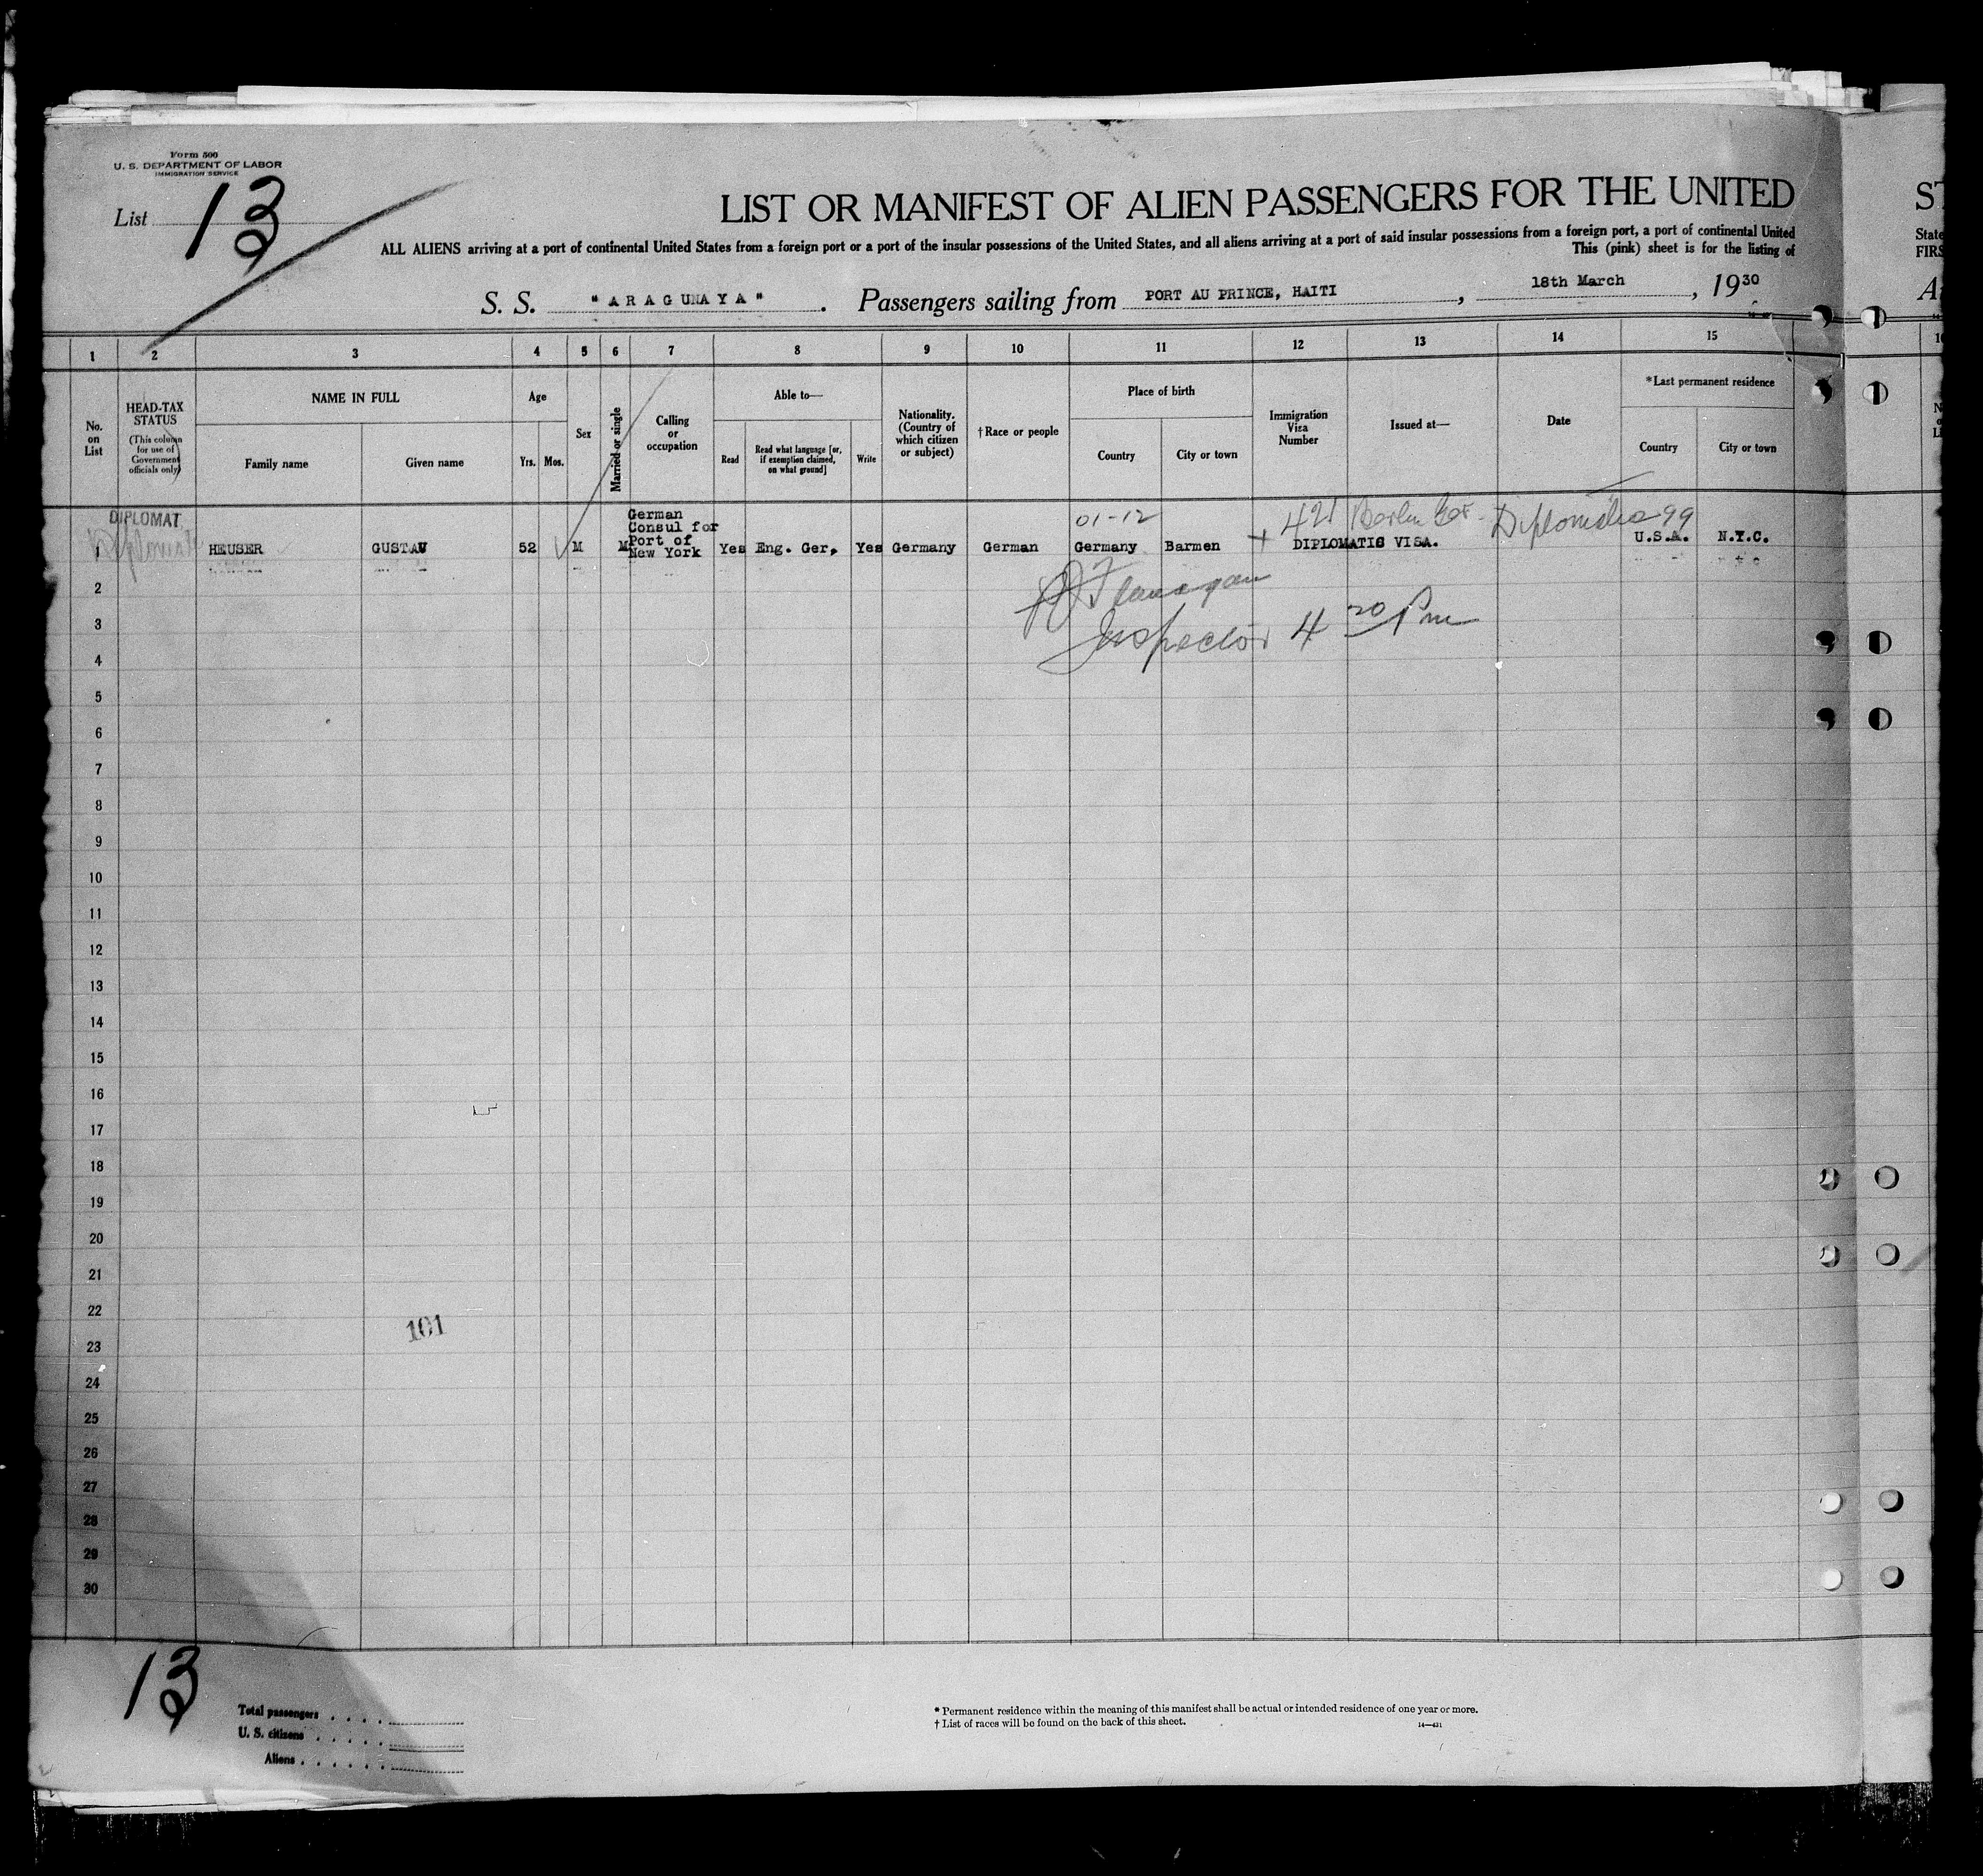 Form 500
U. S. DEPARTMENT OF LABOR
IMMIGRATION SERVICE
List 13
LIST OR MANIFEST OF ALIEN PASSENGERS FOR THE UNITED
ST
ALL ALIENS arriving at a port of continental United States from a foreign port or a port of the insular possessions of the United States, and all aliens arriving at a port of said insular possessions from a foreign port, a port of continental United
State
This (pink) sheet is for the listing of
FIRS
S. S. "ARAGUNAYA". Passengers sailing from PORT AU PRINCE, HAITI, 18th March, 1930
1 2 3 4 5 6 7 8 9 10 11 12 13 14 15
No. on List
HEAD-TAX STATUS
(This column for use of Government officials only)
NAME IN FULL
Family name
Given name
Age
Yrs.
Mos.
Sex
Married or single
Calling or occupation
Able to—
Read
Read what language [or, if exemption claimed, on what ground]
Write
Nationality. (Country of which citizen or subject)
† Race or people
Place of birth
Country
City or town
Immigration Visa Number
Issued at—
Date
*Last permanent residence
Country
City or town
DIPLOMAT
Diplomat
01-12
421 Berlin Ger. Diplomatic 99
1 HEUSER GUSTAV 52 M M German Consul for Port of New York Yes Eng. Ger. Yes Germany German Germany Barmen DIPLOMATIC VISA. U.S.A. N.Y.C.
Flanagan
Inspector 4 20 Pm
2
3
4
5
6
7
8
9
10
11
12
13
14
15
16
17
18
19
20
21
22
101
23
24
25
26
27
28
29
30
13
Total passengers
U. S. citizens
Aliens
* Permanent residence within the meaning of this manifest shall be actual or intended residence of one year or more.
† List of races will be found on the back of this sheet.
14—421